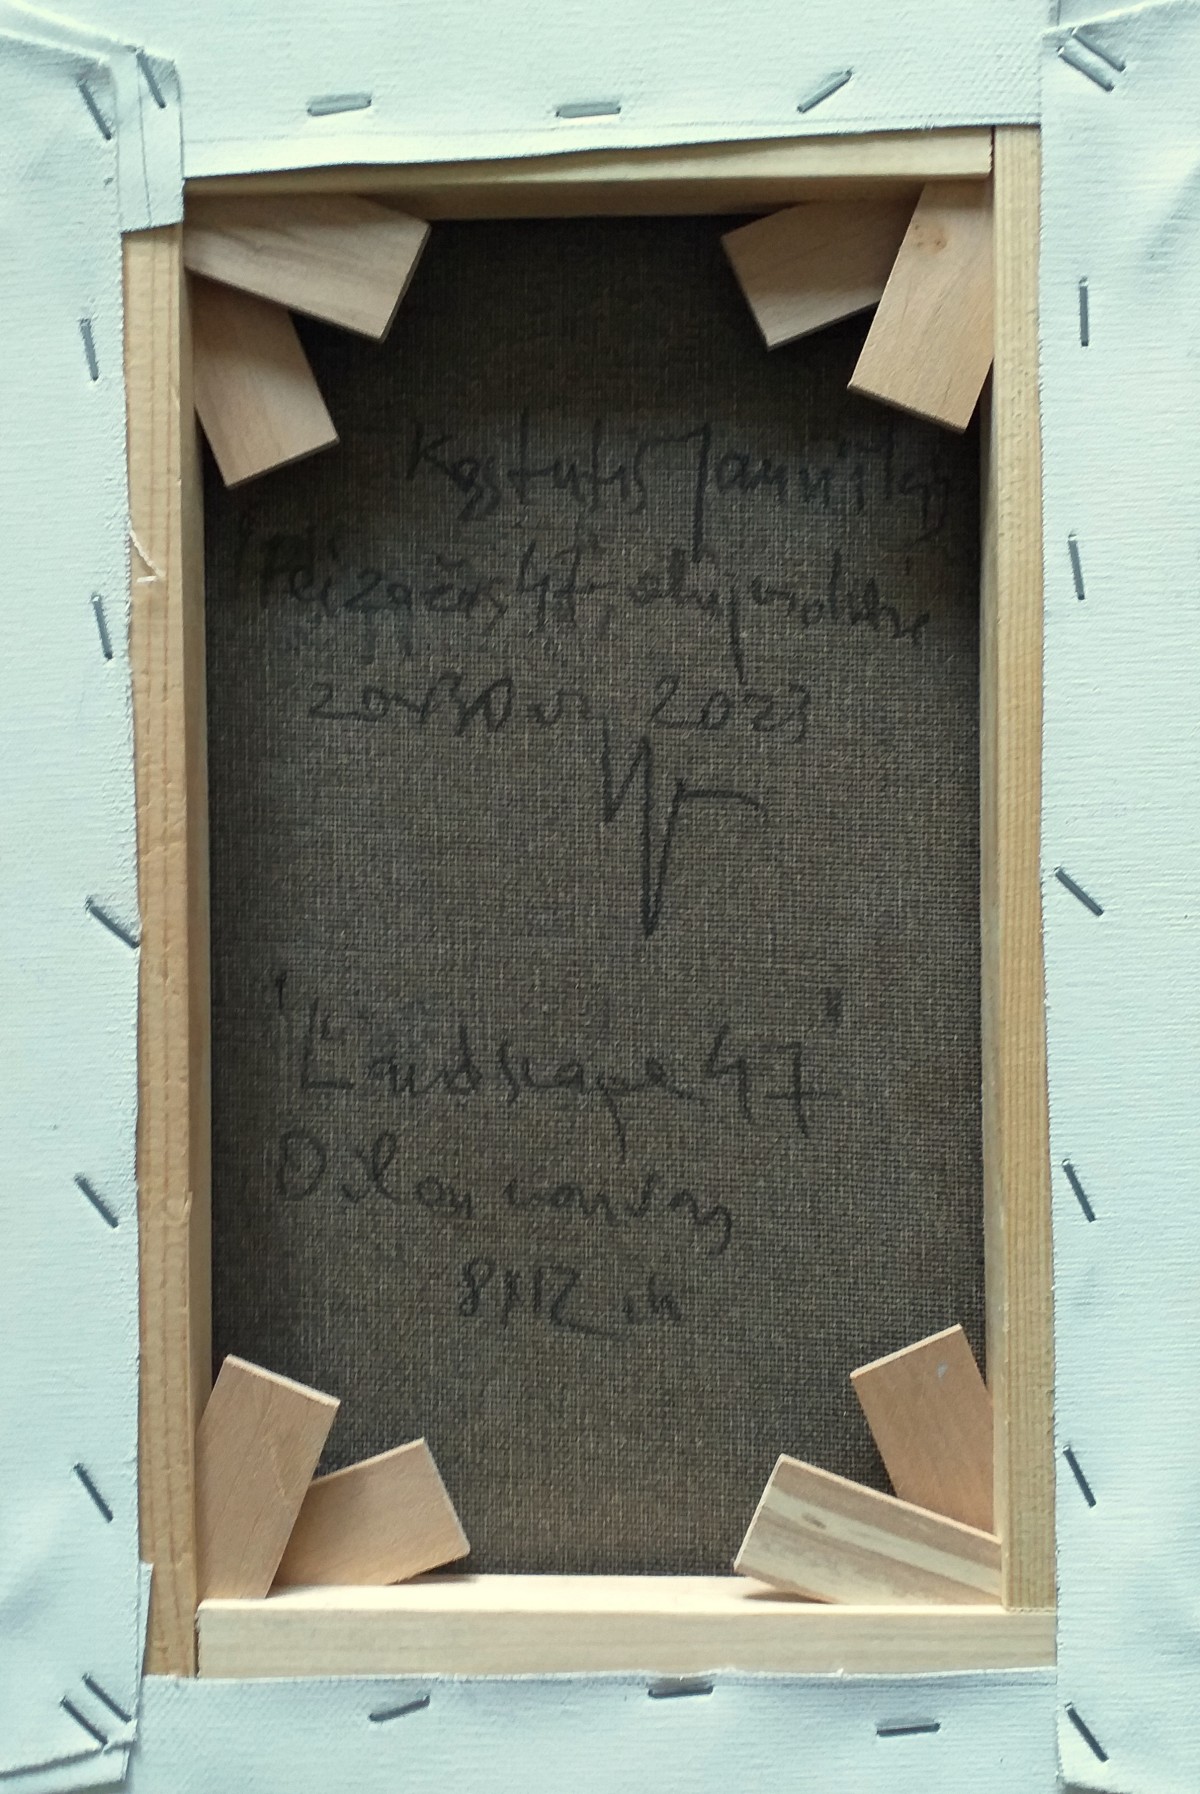 Kęstutis Jauniškis
"Peizažas 47", aliejus drobė
20x30 cm, 2023
"Landscape 47"
Oil on canvas
8x12 in